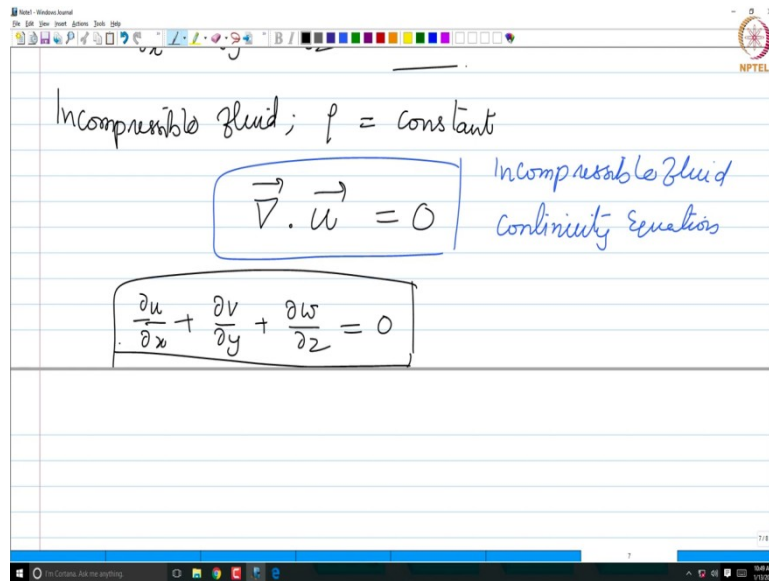 Note1 - Windows Journal
File Edit View Insert Actions Tools Help
NPTEL
Incompressible fluid; ρ = constant
∇⃗ . u⃗ = 0
Incompressible fluid
Continuity Equations
∂u/∂x + ∂v/∂y + ∂w/∂z = 0
7/8
7
I'm Cortana. Ask me anything.